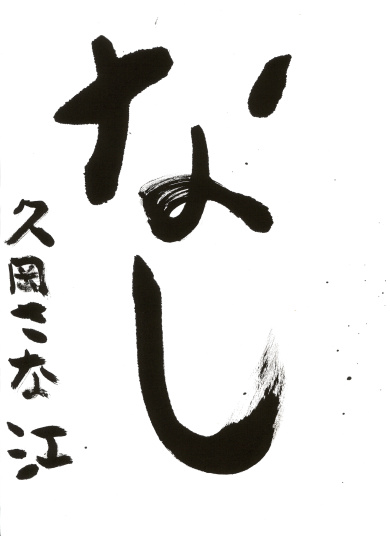 なし
久岡さな江